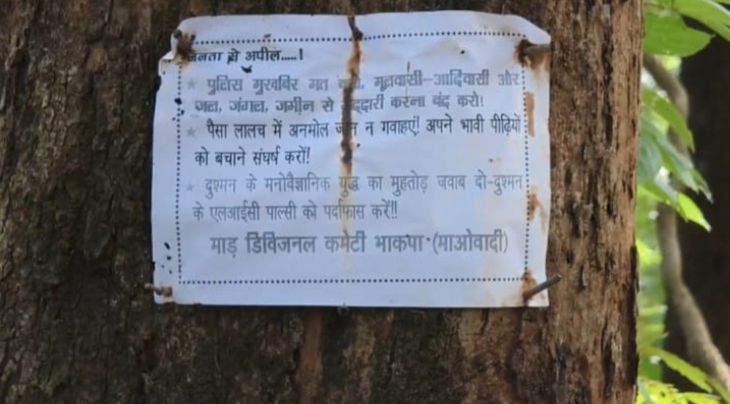 जनता से अपील.....!
★ पुलिस मुखबिर मत बनो, मूलवासी-आदिवासी और
जल, जंगल, जमीन से गद्दारी करना बंद करो!
★ पैसा लालच में अनमोल जान न गवाहएं! अपने भावी पीढ़ियों
को बचाने संघर्ष करों!
★ दुश्मन के मनोवैज्ञानिक युद्ध का मुहतोड़ जवाब दो-दुश्मन
के एलआईसी पाल्सी को पर्दाफास करें!!
माड़ डिविजनल कमेटी भाकपा (माओवादी)